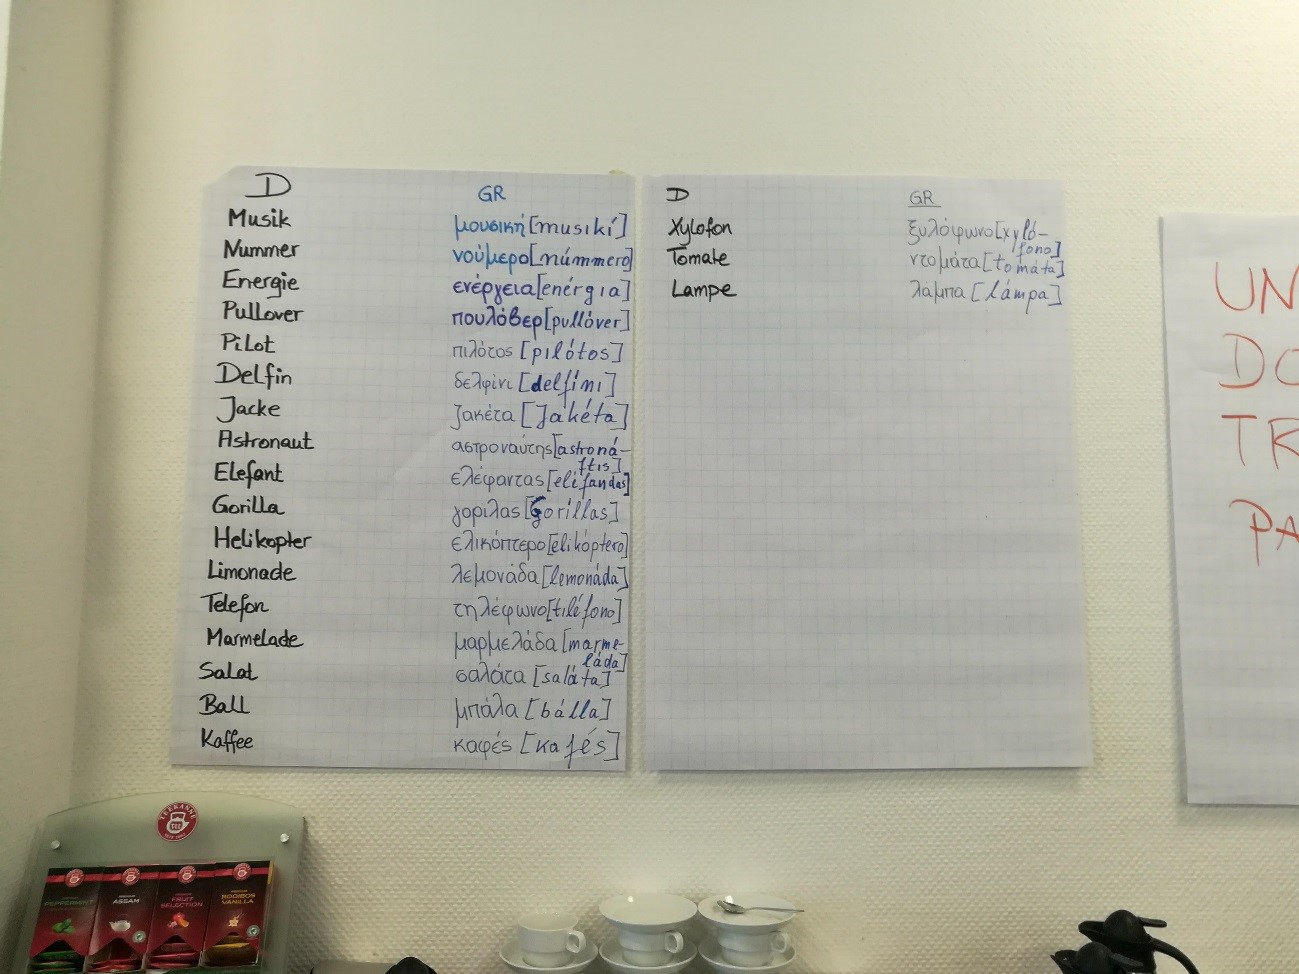 D GR
Musik μουσική [musikí]
Nummer νούμερο [número]
Energie ενέργεια [enérgia]
Pullover πουλόβερ [pullóver]
Pilot πιλότος [pilótos]
Delfin δελφίνι [delfíni]
Jacke ζακέτα [Jakéta]
Astronaut αστροναύτης [astroná-
ftis]
Elefant ελέφαντας [eléfandas]
Gorilla γορίλας [Gorillas]
Helikopter ελικόπτερο [elikóptero]
Limonade λεμονάδα [lemonáda]
Telefon τηλέφωνο [tiléfono]
Marmelade μαρμελάδα [marme-
láda]
Salat σαλάτα [saláta]
Ball μπάλα [bálla]
Kaffee καφές [kafés]
D GR
Xylofon ξυλόφωνο [xyló-
fono]
Tomate ντομάτα [tomáta]
Lampe λάμπα [lámpa]
UN
DO
TR
PA
TEEKANNE
TEE
PEPPERMINT
ASSAM
FRUIT
SELECTION
ROOIBOS
VANILLA